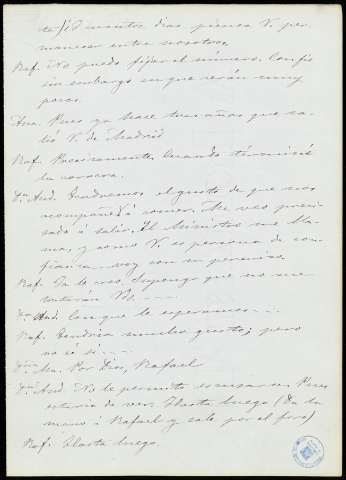 te/ ¿Y cuantos dias piensa V. per-
manecer entre nosotros.
Raf. No puedo fijar el número. Confio
sin embargo en que serán muy
pocos.
Ana. Pues ya hace tres años que sa-
lió V. de Madrid
Raf. Precisamente. Cuando terminé
la carrera.
Dn. And. Tendremos el gusto de que nos
acompañe á comer. Me veo preci-
sado á salir. El Ministro me lla-
ma, y como V. es persona de con-
fianza.. voy con su permiso.
Raf. Ya lo veo. Supongo que no me
Vds. ----
Dn. And. Con que le esperamos...
Raf. Tendria mucho gusto; pero
no sé si...
Ana. Por Dios, Rafael
Dn. And. No le permito escusarse. Pues
estaria de ver. Hasta luego (Da la
mano á Rafael y sale por el foro)
Raf. Hasta luego.